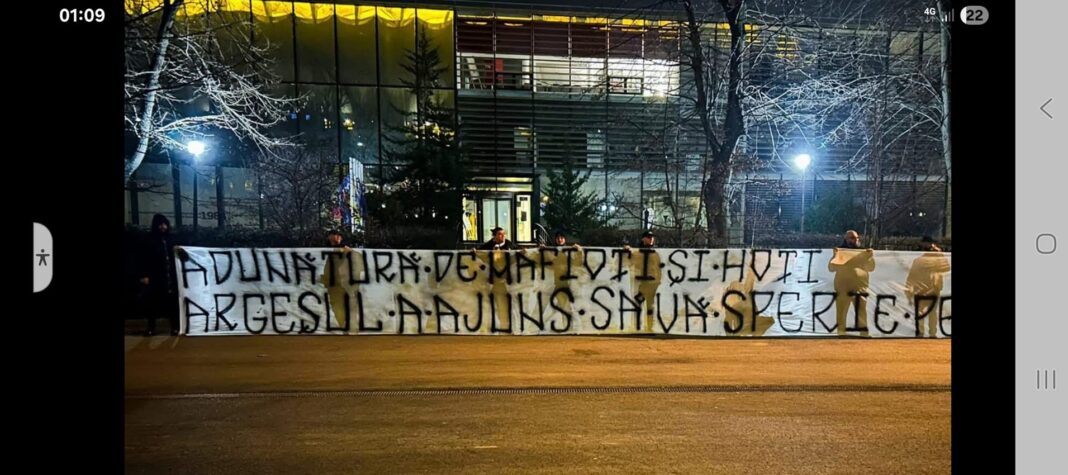 01:09
4G
22
1984
ADUNĂTURĂ·DE·MAFIOTI·ȘI·HOTI
ARGESUL·A·AJUNS·SĂ·VĂ·SPERIE·PE